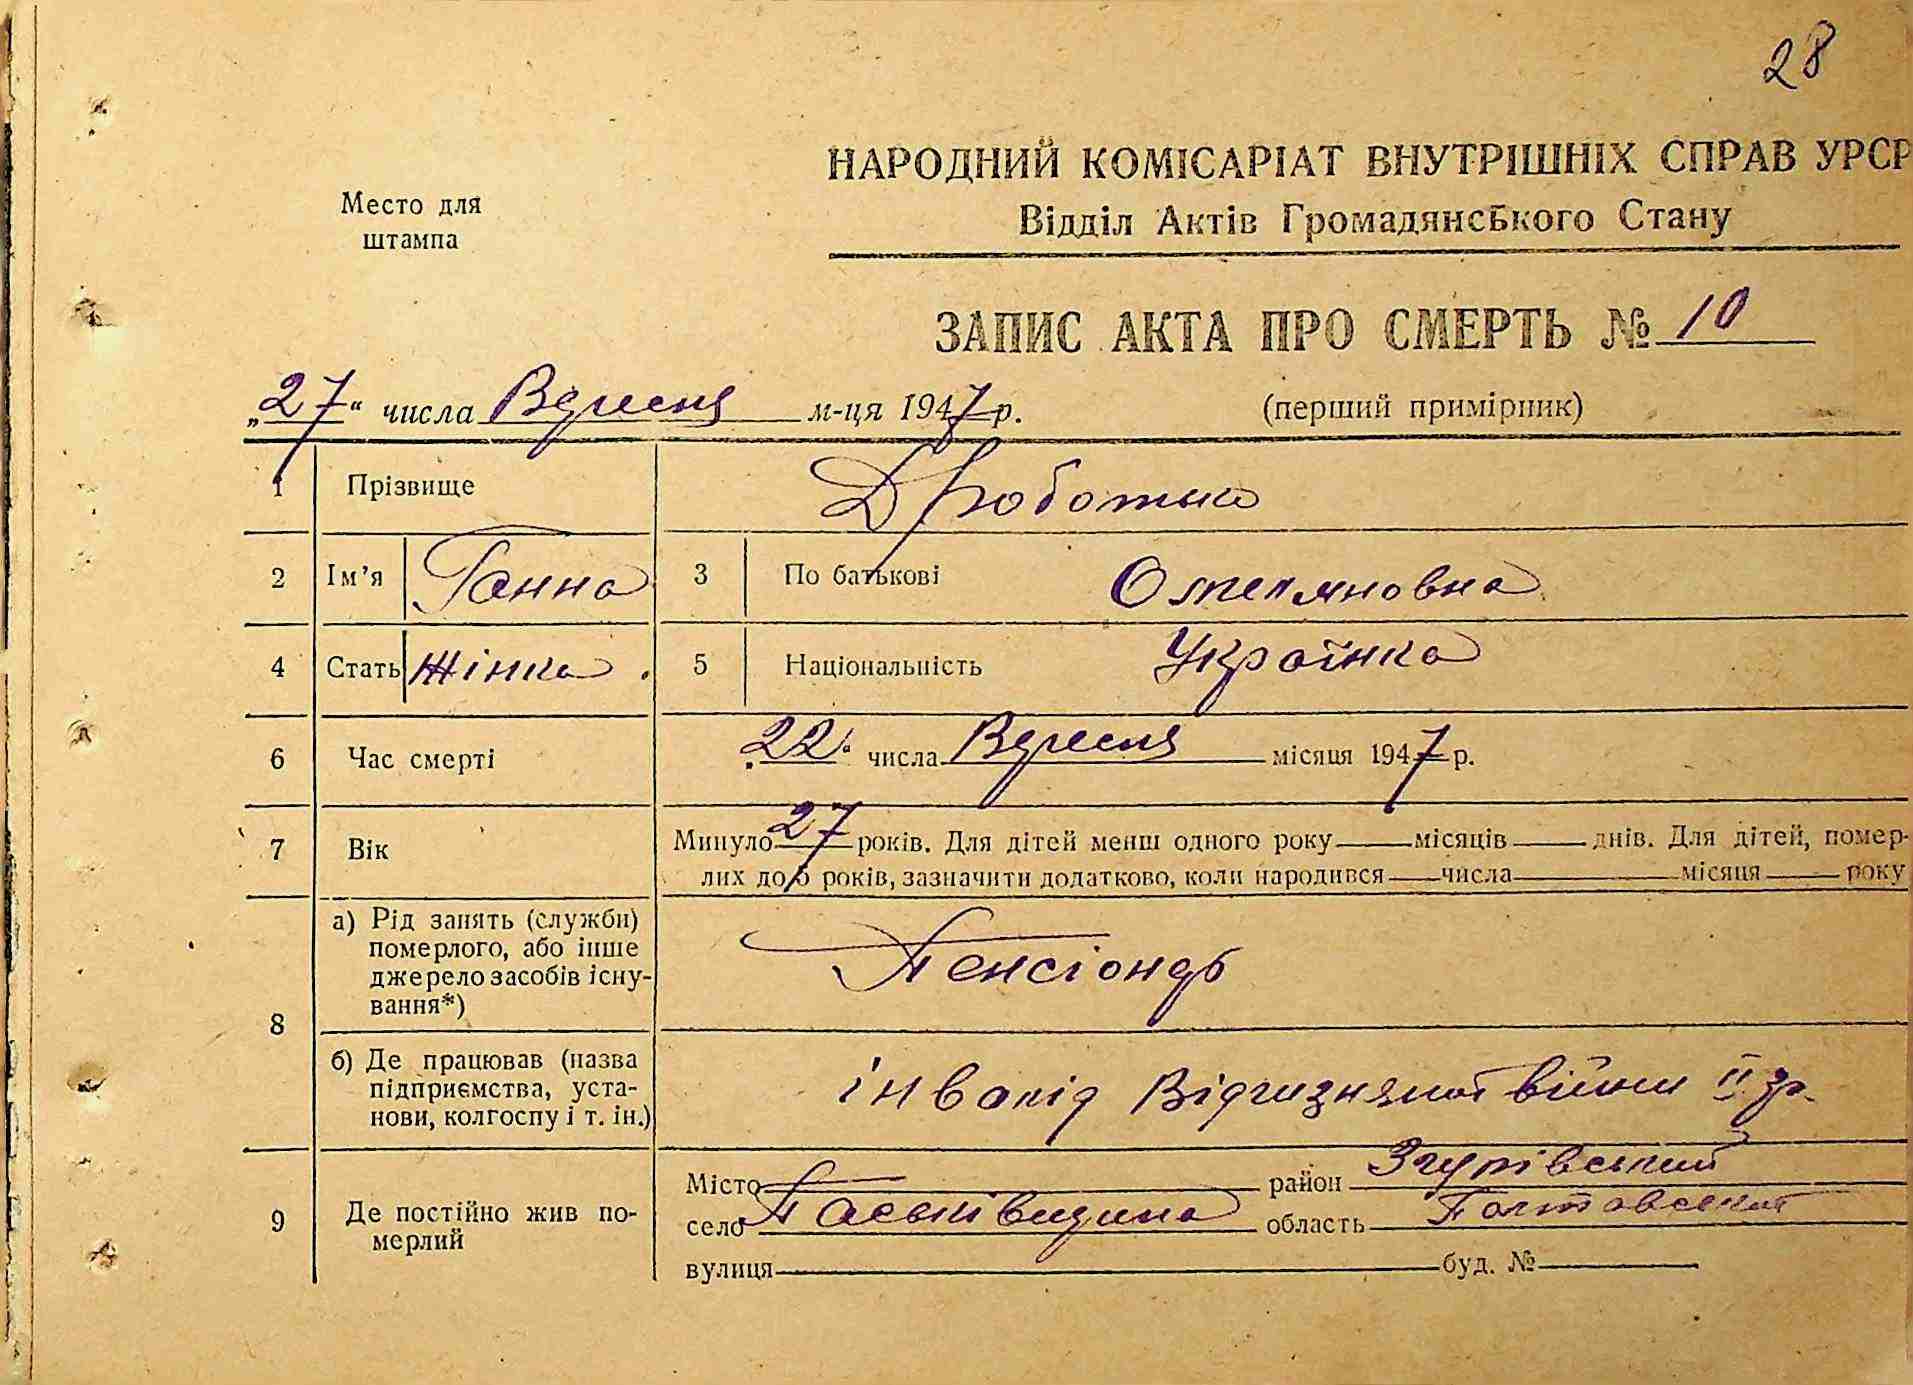 28
НАРОДНИЙ КОМІСАРІАТ ВНУТРІШНІХ СПРАВ УРСР
Место для штампа
Відділ Актів Громадянського Стану
ЗАПИС АКТА ПРО СМЕРТЬ № 10
„27“ числа Вересня м-ця 1947 р. (перший примірник)
1 Прізвище Дроботько
2 Ім’я Ганна 3 По батькові Омеляновна
4 Стать Жінка. 5 Національність Українка
6 Час смерті „22“ числа Вересня місяця 1947 р.
7 Вік Минуло 27 років. Для дітей менш одного року — місяців — днів. Для дітей, помер-
лих до 5 років, зазначити додатково, коли народився — числа — місяця — року
8 а) Рід занять (служби)
померлого, або інше
джерело засобів існу-
вання*)
Пенсіонер
б) Де працював (назва
підприємства, уста-
нови, колгоспу і т. ін.)
інвалід Відчизняної війни II гр.
9 Де постійно жив по-
мерлий
Місто — район Згурівський
село Пасківщина область Полтавська
вулиця — буд. № —